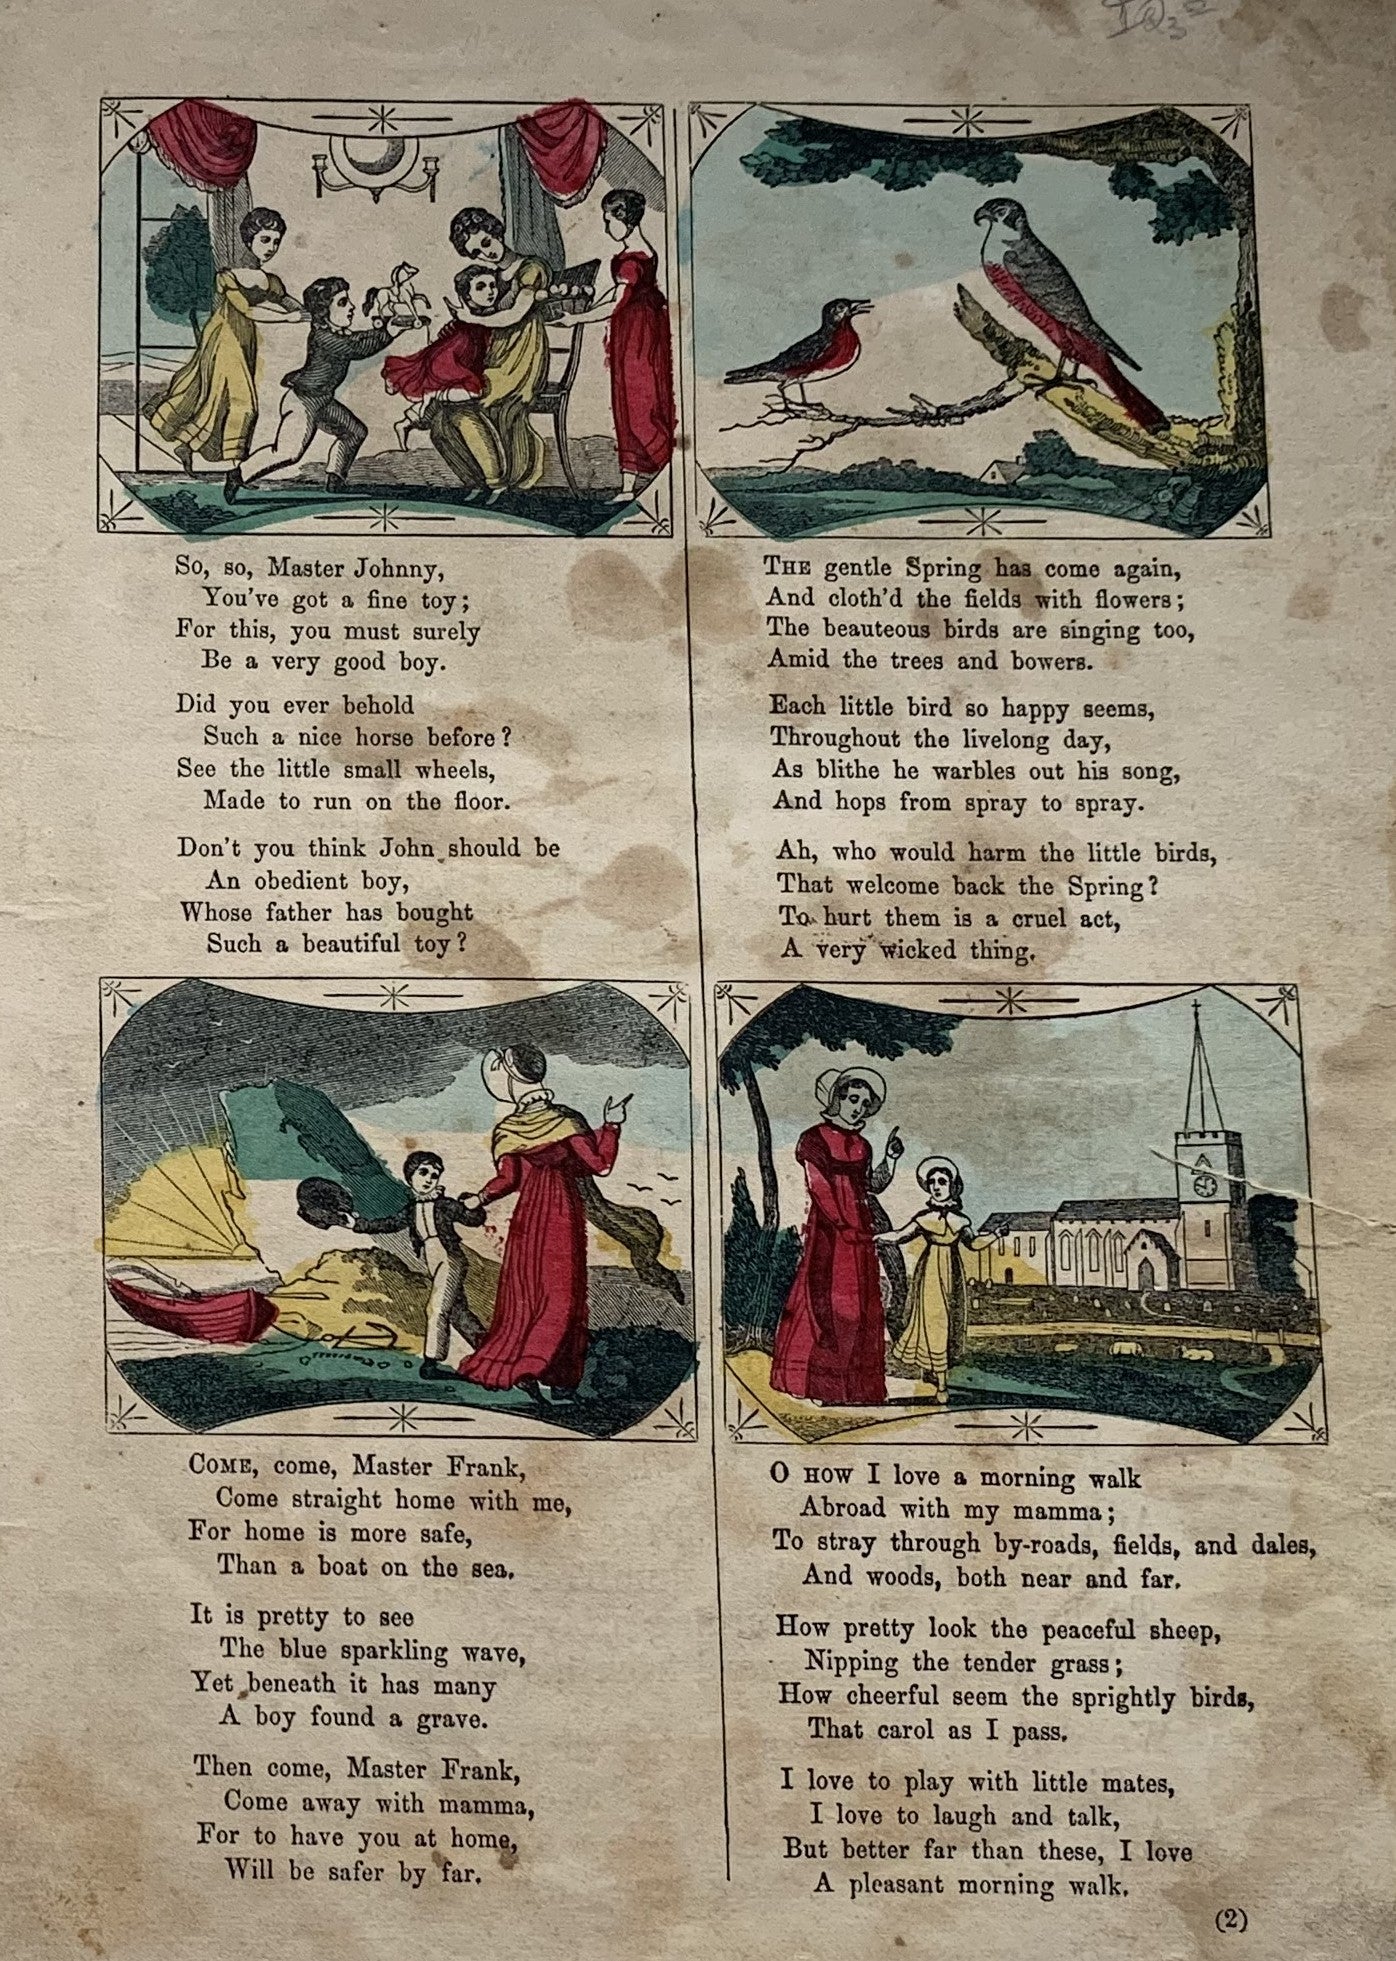 So, so, Master Johnny,
You've got a fine toy;
For this, you must surely
Be a very good boy.
Did you ever behold
Such a nice horse before?
See the little small wheels,
Made to run on the floor.
Don't you think John should be
An obedient boy,
Whose father has bought
Such a beautiful toy?
THE gentle Spring has come again,
And cloth'd the fields with flowers;
The beauteous birds are singing too,
Amid the trees and bowers.
Each little bird so happy seems,
Throughout the livelong day,
As blithe he warbles out his song,
And hops from spray to spray.
Ah, who would harm the little birds,
That welcome back the Spring?
To hurt them is a cruel act,
A very wicked thing.
COME, come, Master Frank,
Come straight home with me,
For home is more safe,
Than a boat on the sea.
It is pretty to see
The blue sparkling wave,
Yet beneath it has many
A boy found a grave.
Then come, Master Frank,
Come away with mamma,
For to have you at home,
Will be safer by far.
O HOW I love a morning walk
Abroad with my mamma;
To stray through by-roads, fields, and dales,
And woods, both near and far.
How pretty look the peaceful sheep,
Nipping the tender grass;
How cheerful seem the sprightly birds,
That carol as I pass.
I love to play with little mates,
I love to laugh and talk,
But better far than these, I love
A pleasant morning walk.
(2)